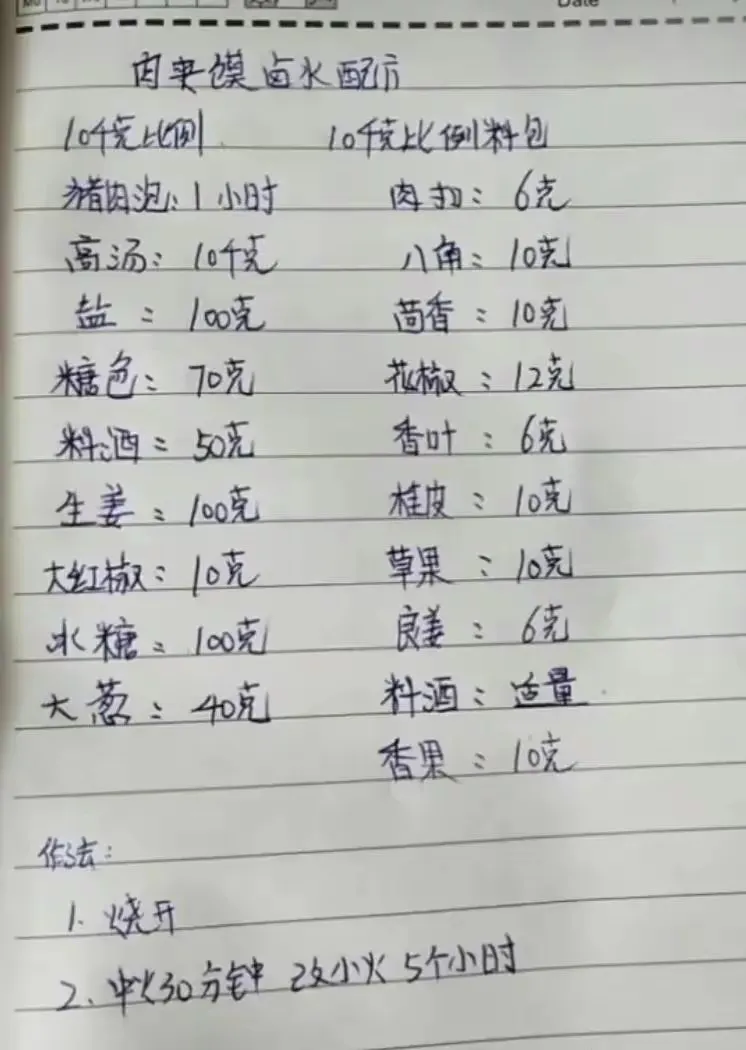 Date
肉夹馍卤水配方
10千克比例 10千克比例料包
猪肉泡：1小时 肉扣：6克
高汤：10千克 八角：10克
盐：100克 茴香：10克
糖色：70克 花椒：12克
料酒：50克 香叶：6克
生姜：100克 桂皮：10克
大红椒：10克 草果：10克
冰糖：100克 良姜：6克
大葱：40克 料酒：适量
香果：10克
作法：
1. 烧开
2、中火30分钟 改小火 5个小时